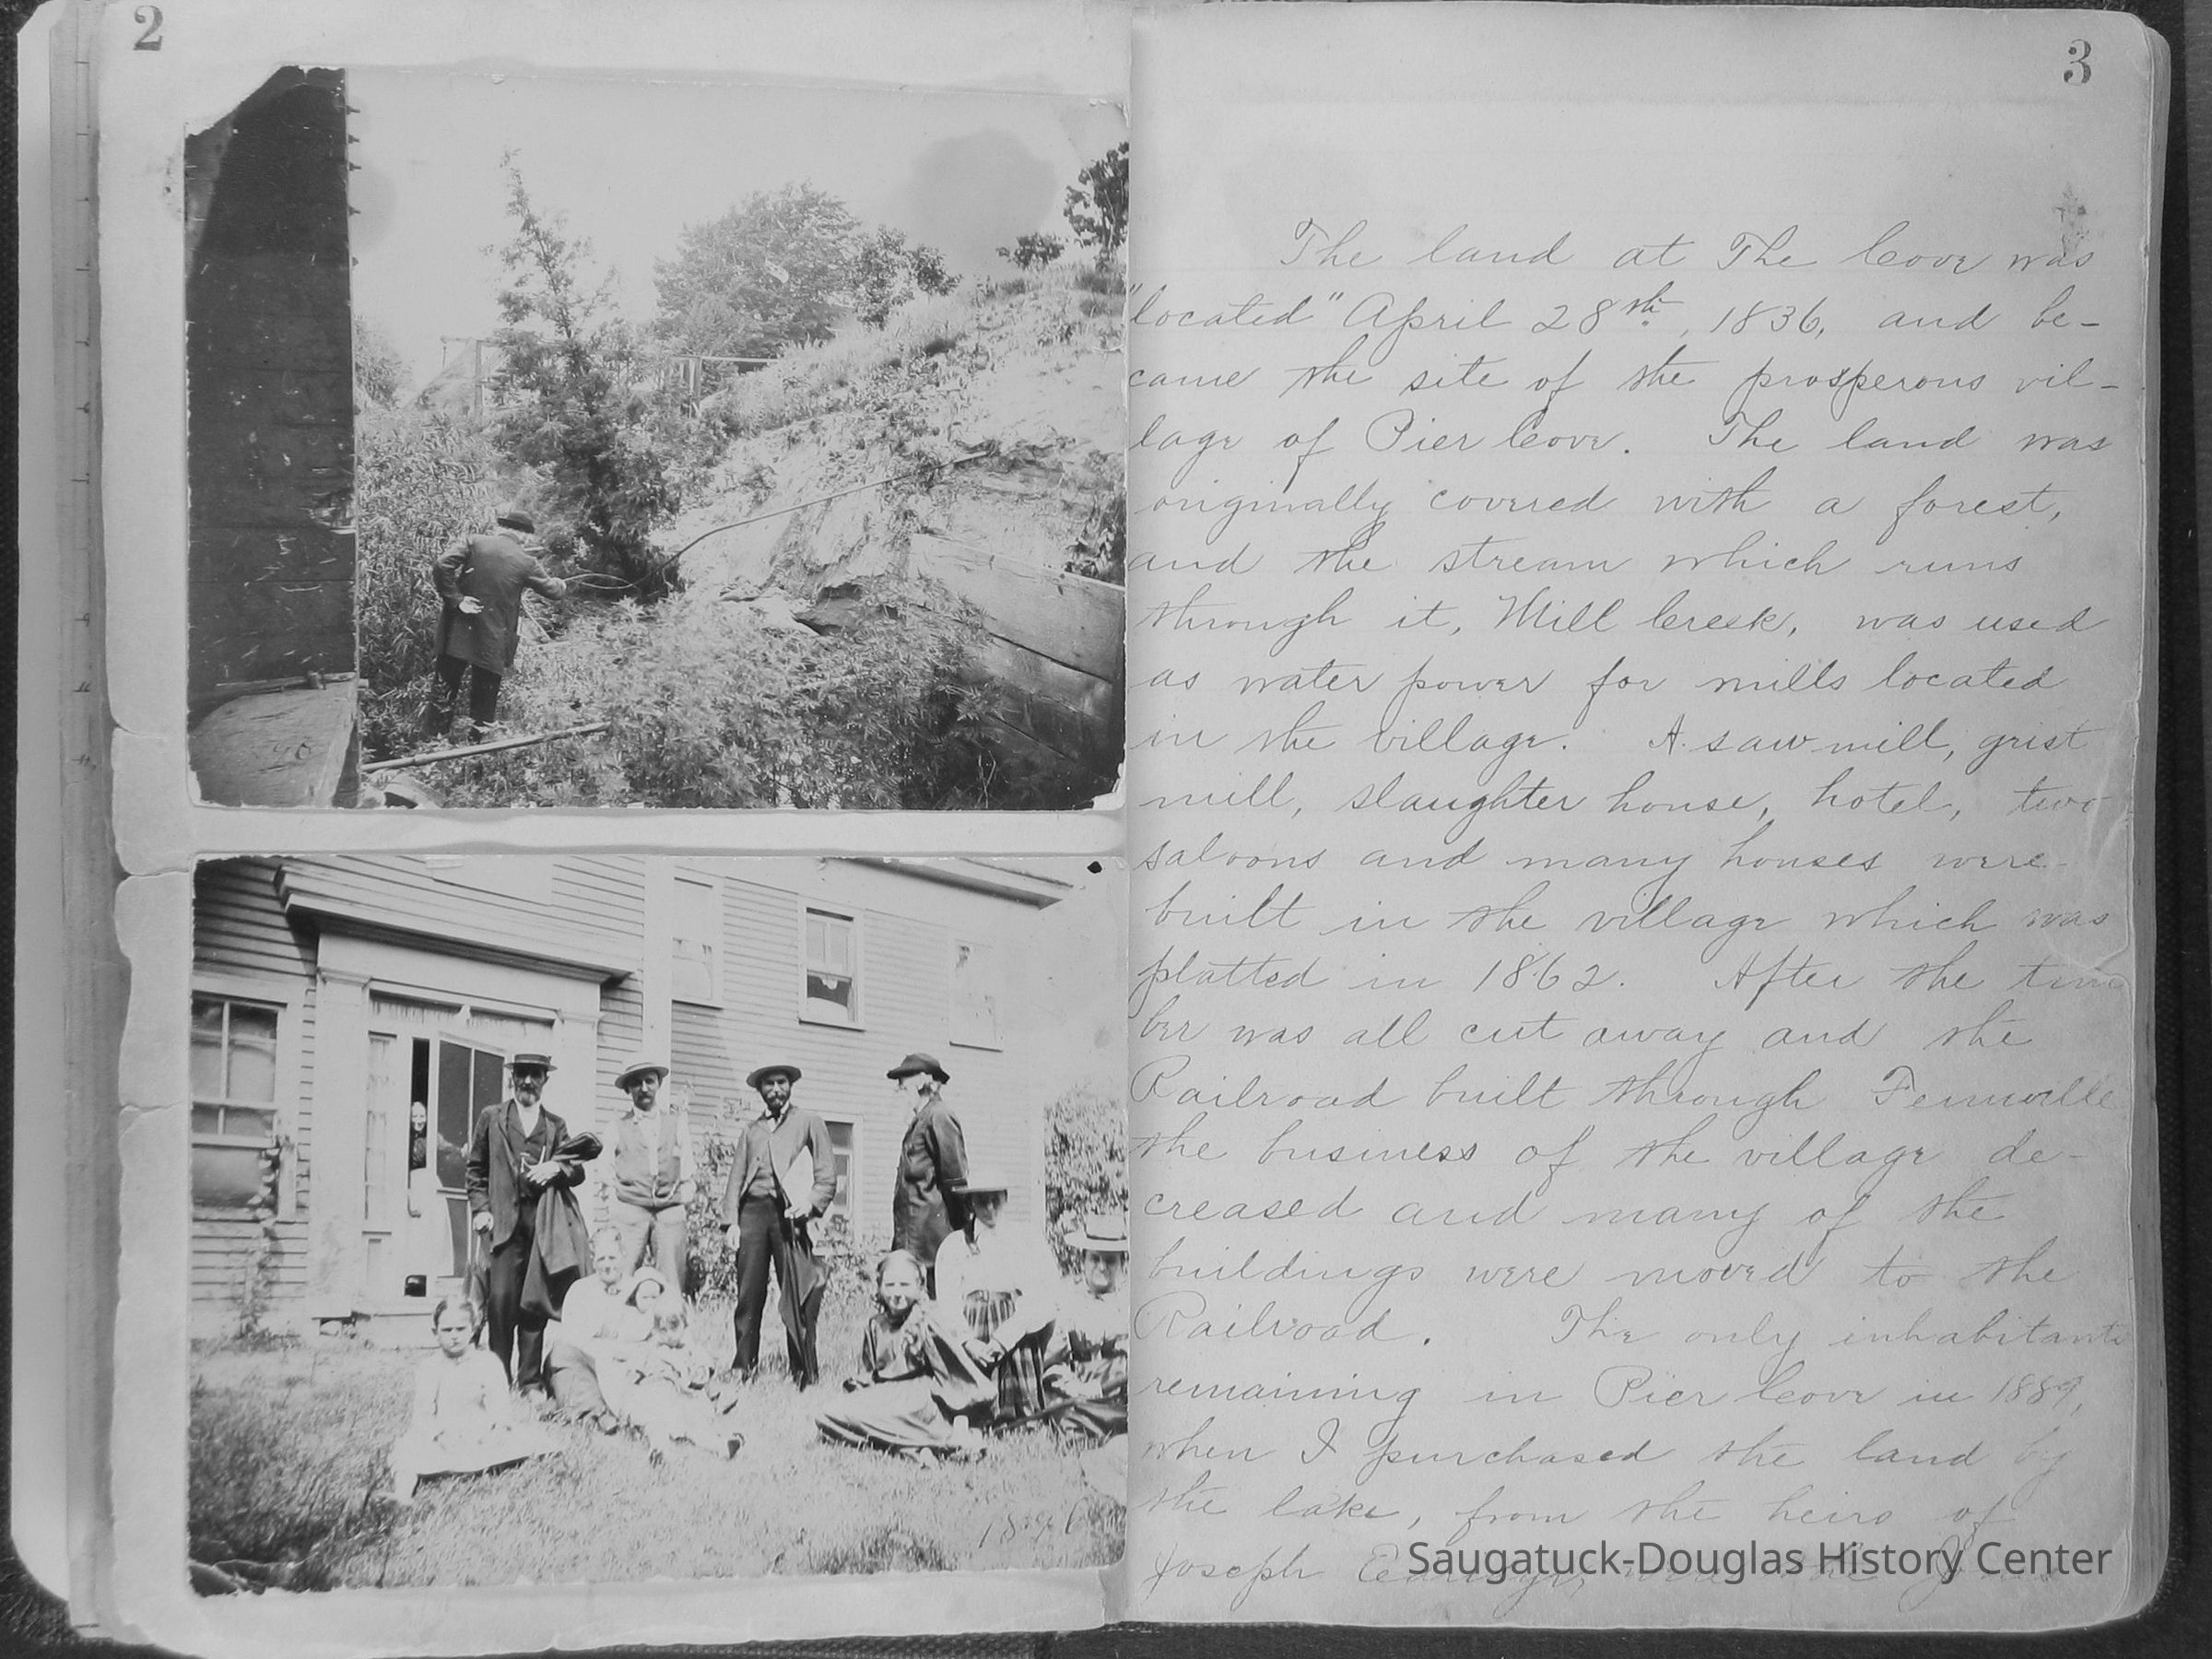 2
1896
3
The land at The Cove was
"located" April 28th, 1836, and be-
came the site of the prosperous vil-
lage of Pier Cove. The land was
originally covered with a forest,
and the stream which runs
through it, Mill Creek, was used
as water power for mills located
in the village. A saw mill, grist
mill, slaughter house, hotel, two
saloons and many houses were
built in the village which was
platted in 1862. After the tim
ber was all cut away and the
Railroad built through Fennville
the business of the village de-
creased and many of the
buildings were moved to the
Railroad. The only inhabitants
remaining in Pier Cove in 1889,
when I purchased the land by
the lake, from the heirs of
Joseph were the
Saugatuck-Douglas History Center